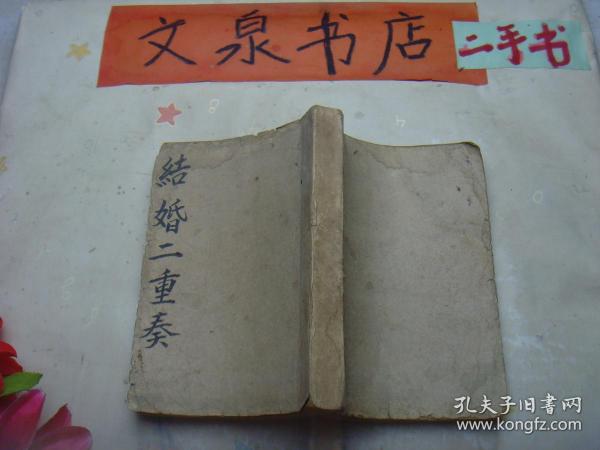 文泉书店
二手书
結婚二重奏
孔夫子旧書网
www.kongfz.com